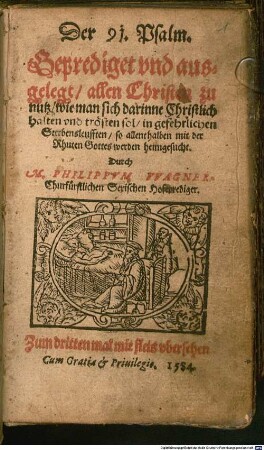 Der 91. Psalm.
Geprediget vnd aus-
gelegt / allen Christen zu
nutz / wie man sich darinne Christlich
halten vnd trösten sol / in gefehrlichen
Sterbensleufften / so allenthalben mit der
Rhuten Gottes werden heimgesucht.
Durch
M. PHILIPPVM VVAGNER
Churfürstlichen Sechsischen Hofprediger.
Zum dritten mal mit fleis vbersehen
Cum Gratia & Privilegio. 1584.